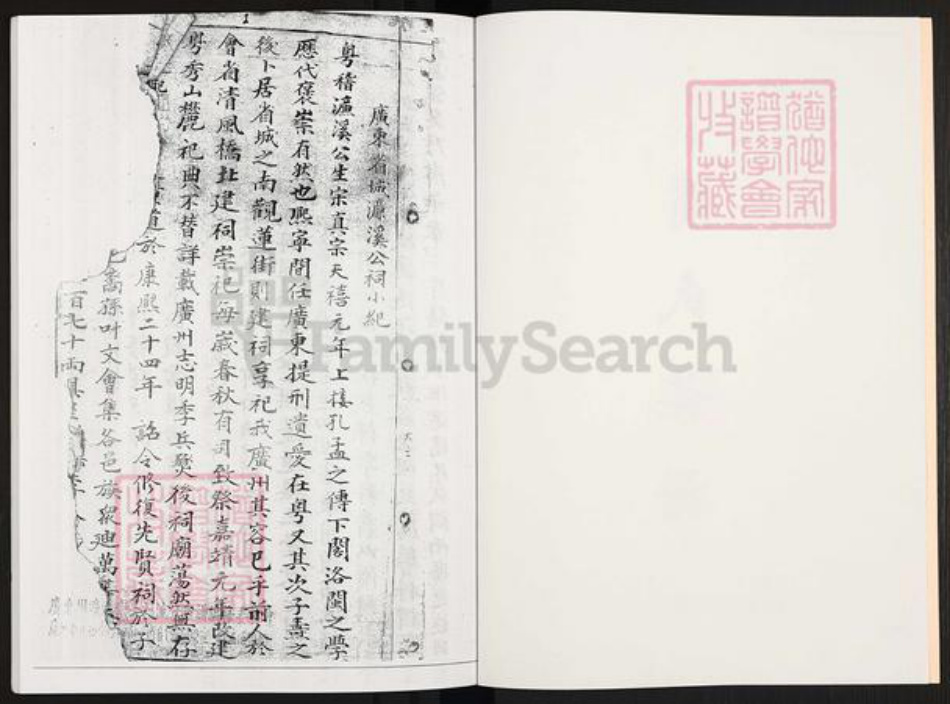 廣東省城濂溪公祠小紀
粤稽濂溪公生宋真宗天禧元年上接孔孟之傳下閣洛閩之學
歷代褒崇有然也熙寧間任廣東提刑遺愛在粤又其次子燾之
後卜居省城之南觀蓮街則建祠享祀我廣州其容已乎前人於
會省清風橋北建祠崇祀每歲春秋有司致祭嘉靖元年改建
粤秀山麓祀典不替詳載廣州志明季兵燹後祠廟蕩然無存
道於康熙二十四年 詔令修復先賢祠於子
裔孫叶文會集各邑族眾廸萬
百九十兩具
猶他家
譜學會
收藏
FamilySearch